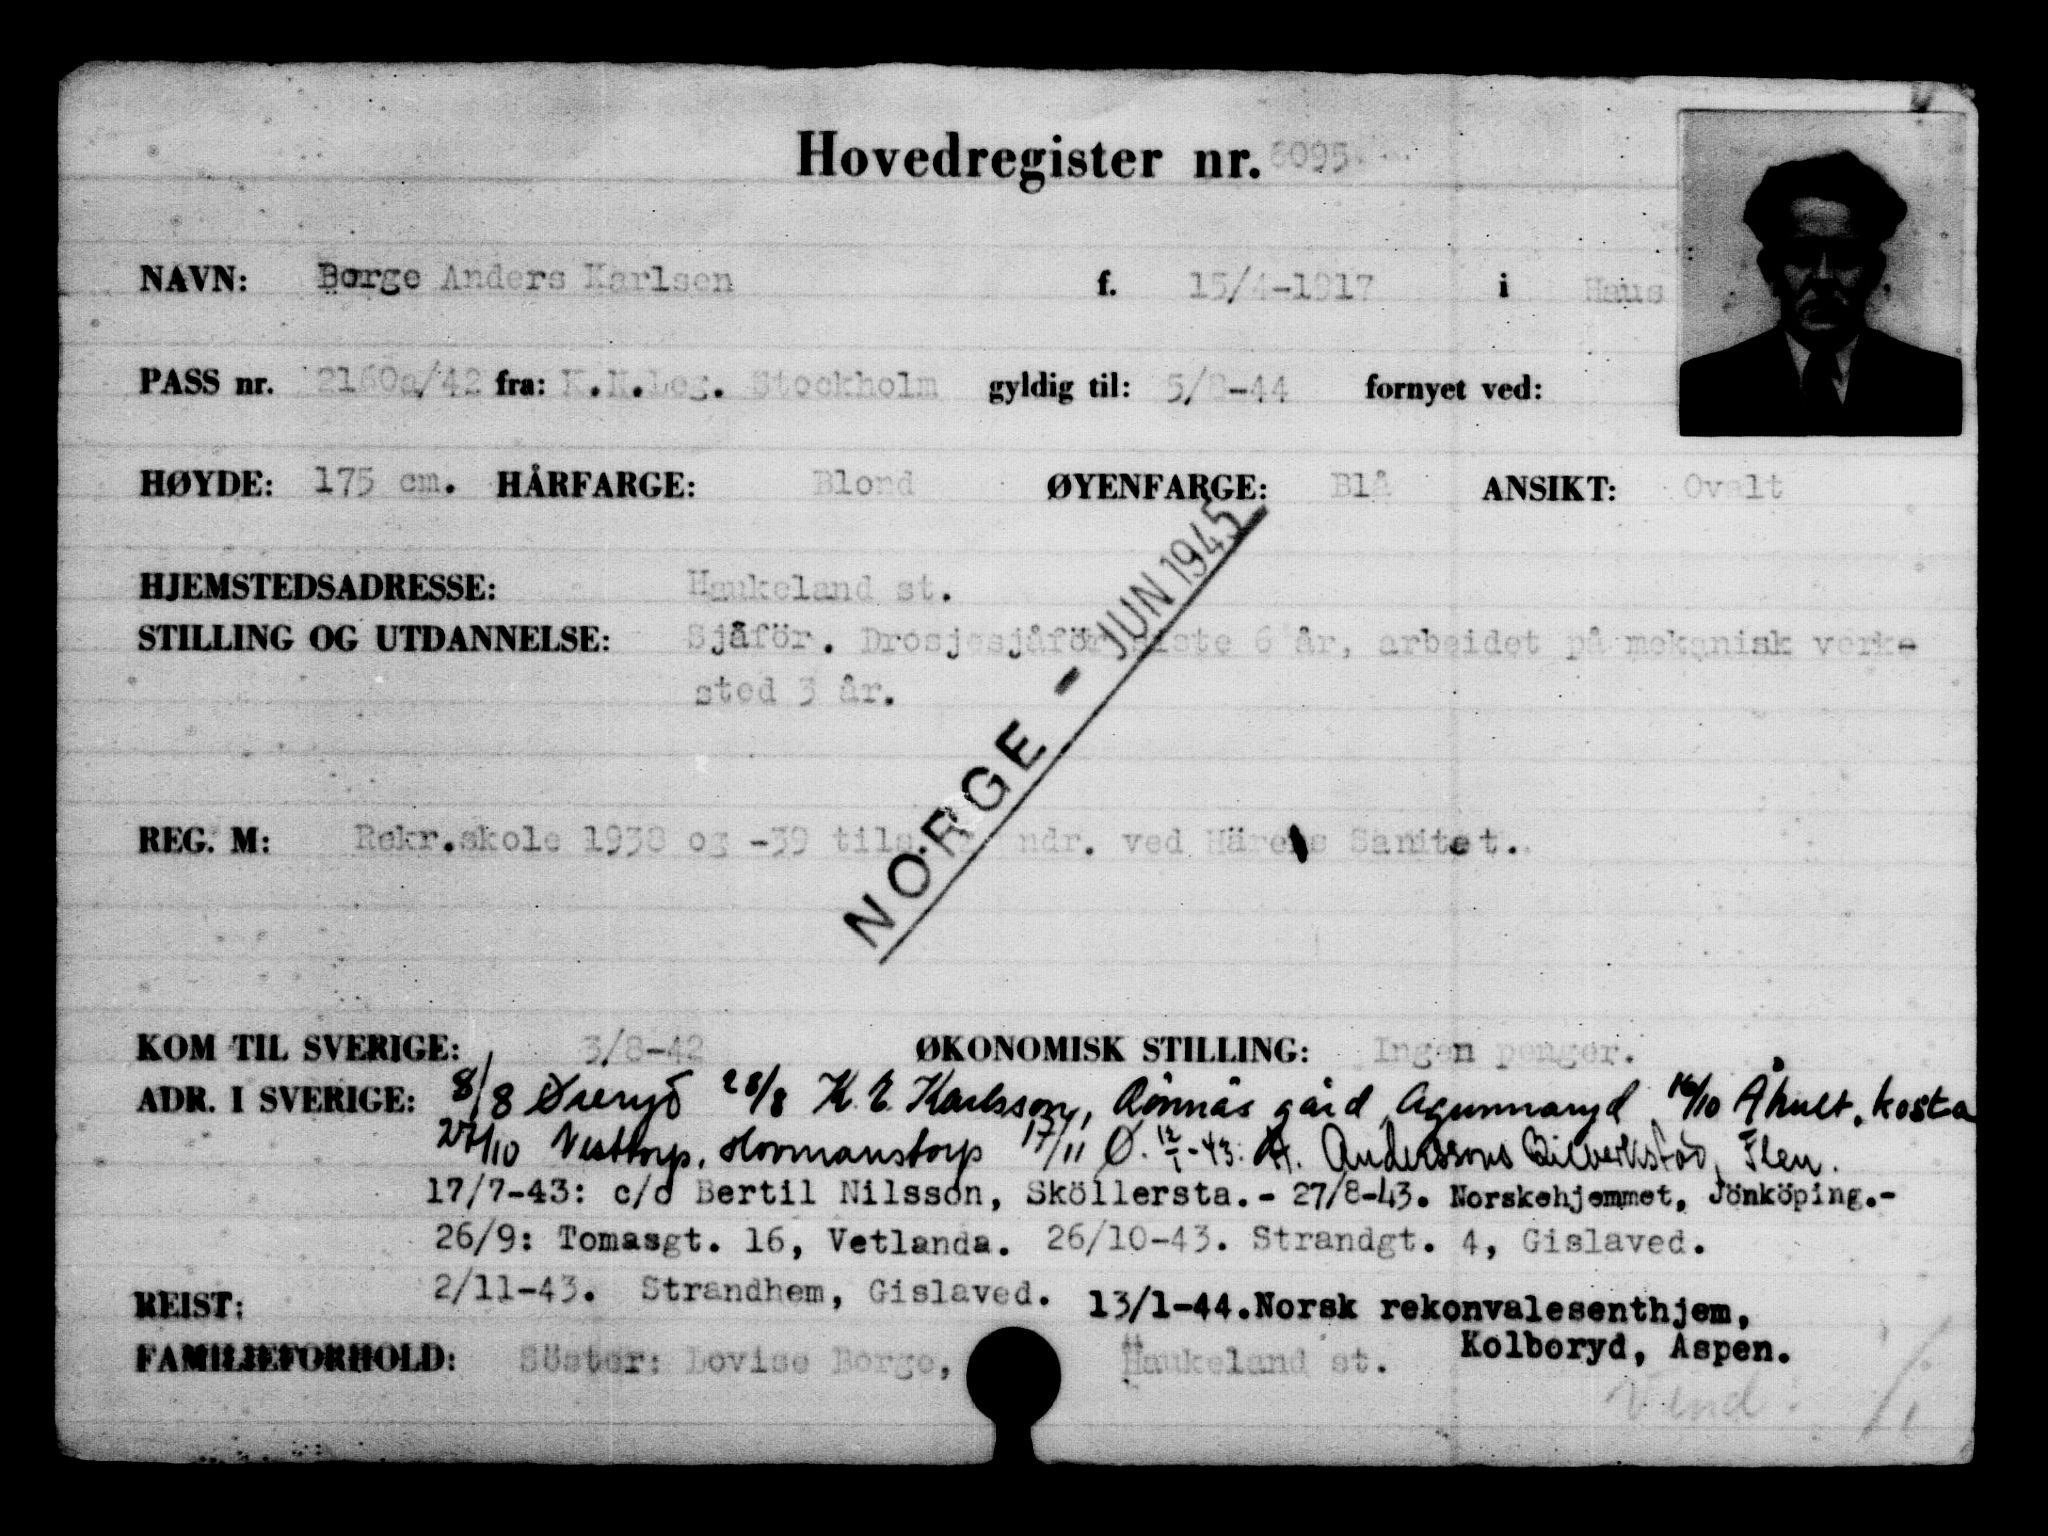 Hovedregister nr. 6095.
NAVN: Borge Anders Karlsen f. 15/4-1917 i Haus
PASS nr. 2160a/42 fra: K.N.Leg. Stockholm gyldig til: 5/8-44 fornyet ved:
HØYDE: 175 cm. HÅRFARGE: Blond ØYENFARGE: Blå ANSIKT: Ovalt
HJEMSTEDSADRESSE: Haukeland st.
STILLING OG UTDANNELSE: Sjåför. Drosjesjåför siste 6 år, arbeidet på mekanisk verke-
sted 3 år.
NORGE - JUN 1945
REG. M: Rekr.skole 1938 og -39 tils. ndr. ved Härens Sanitet.
KOM TIL SVERIGE: 3/8-42 ØKONOMISK STILLING: Ingen penger.
ADR. I SVERIGE: 8/8 Øreryd 28/8 K. E. Karlsson, Rönnäs gård, Agunnaryd 16/10 Åhult, Kosta
27/10 Vesttorp, Hovmanstorp 17/11 Ø. 12/1-43: H. Anderssons Bilverkstad, Flen.
17/7-43: c/o Bertil Nilsson, Sköllersta.- 27/8-43. Norskehjemmet, Jönköping.-
26/9: Tomasgt. 16, Vetlanda. 26/10-43. Strandgt. 4, Gislaved.
2/11-43. Strandhem, Gislaved. 13/1-44. Norsk rekonvalesenthjem,
Kolboryd, Aspen.
REIST:
FAMILIEFORHOLD: Söster: Lovise Borge, Haukeland st.
Vend. /.